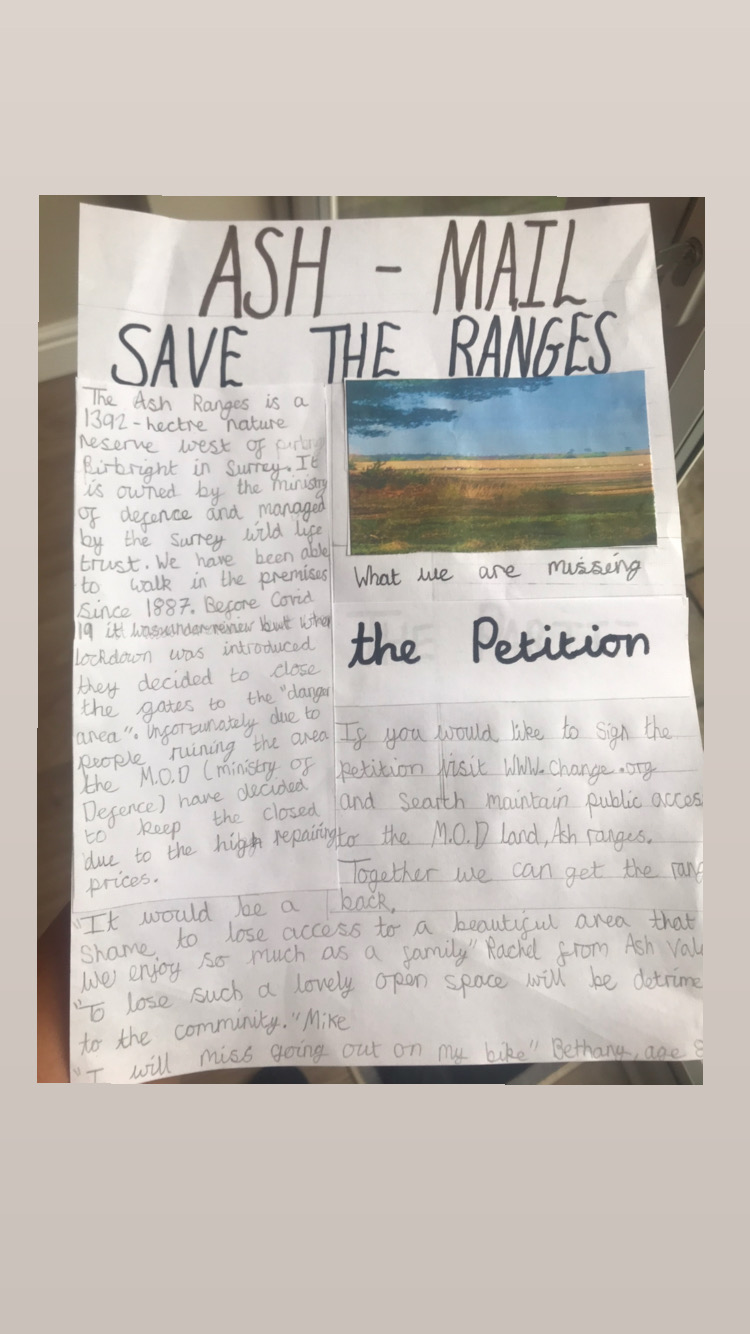 ASH - MAIL
SAVE THE RANGES
The Ash Ranges is a
1392-hectre nature
reserve west of
Pirbright in Surrey. It
is owned by the ministry
of defence and managed
by the Surrey wild life
trust. We have been able
to walk in the premises
since 1887. Before Covid
19 it was under review but when
lockdown was introduced
they decided to close
the gates to the "danger
area". Unfortunately due to
people ruining the area
the M.O.D (ministry of
Defence) have decided
to keep the closed
due to the high repairing
prices.
What we are missing
the Petition
If you would like to sign the
petition visit WWW.change.org
and search maintain public acces
to the M.O.D land, Ash ranges.
Together we can get the rang
back,
"It would be a
Shame to lose access to a beautiful area that
we enjoy so much as a family" Rachel from Ash Val
"To lose such a lovely open space will be detrime
to the comminity." Mike
"I will miss going out on my bike" Bethany, age 8